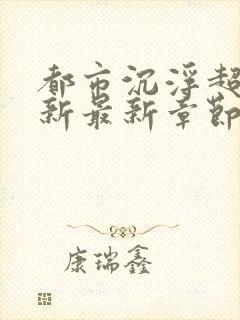 都市沉浮超
新最新章節
康瑞鑫